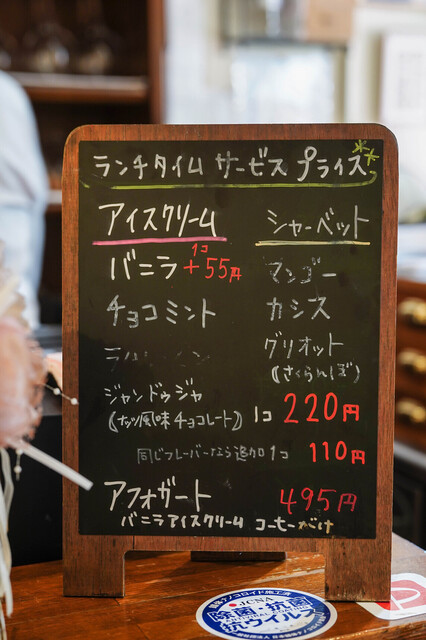 ランチタイム サービス プライス
アイスクリーム
バニラ 1コ +55円
チョコミント
ジャンドゥジャ
(ナッツ風味チョコレート)
シャーベット
マンゴー
カシス
グリオット
(さくらんぼ)
1コ 220円
同じフレーバーなら追加1コ 110円
アフォガート 495円
バニラアイスクリーム コーヒーがけ
JCNA
除菌・抗菌
抗ウイルス